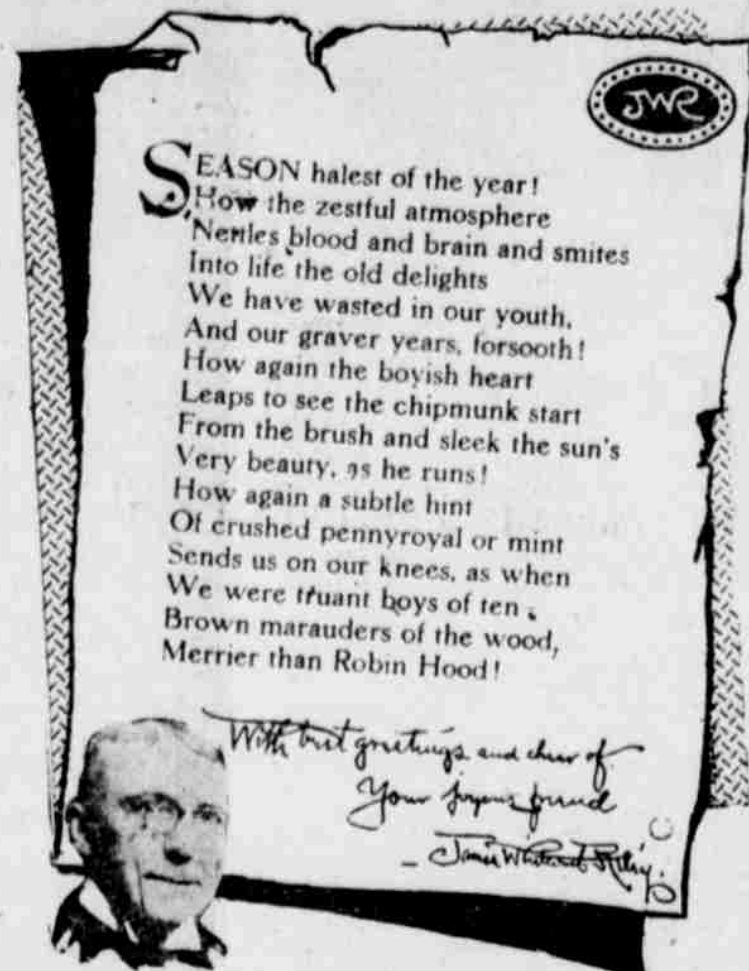 JWR
SEASON halest of the year!
How the zestful atmosphere
Nettles blood and brain and smites
Into life the old delights
We have wasted in our youth,
And our graver years, forsooth!
How again the boyish heart
Leaps to see the chipmunk start
From the brush and sleek the sun's
Very beauty, as he runs!
How again a subtle hint
Of crushed pennyroyal or mint
Sends us on our knees, as when
We were truant boys of ten,
Brown marauders of the wood,
Merrier than Robin Hood!
With best greetings and cheer of
Your joyous friend
- James Whitcomb Riley.